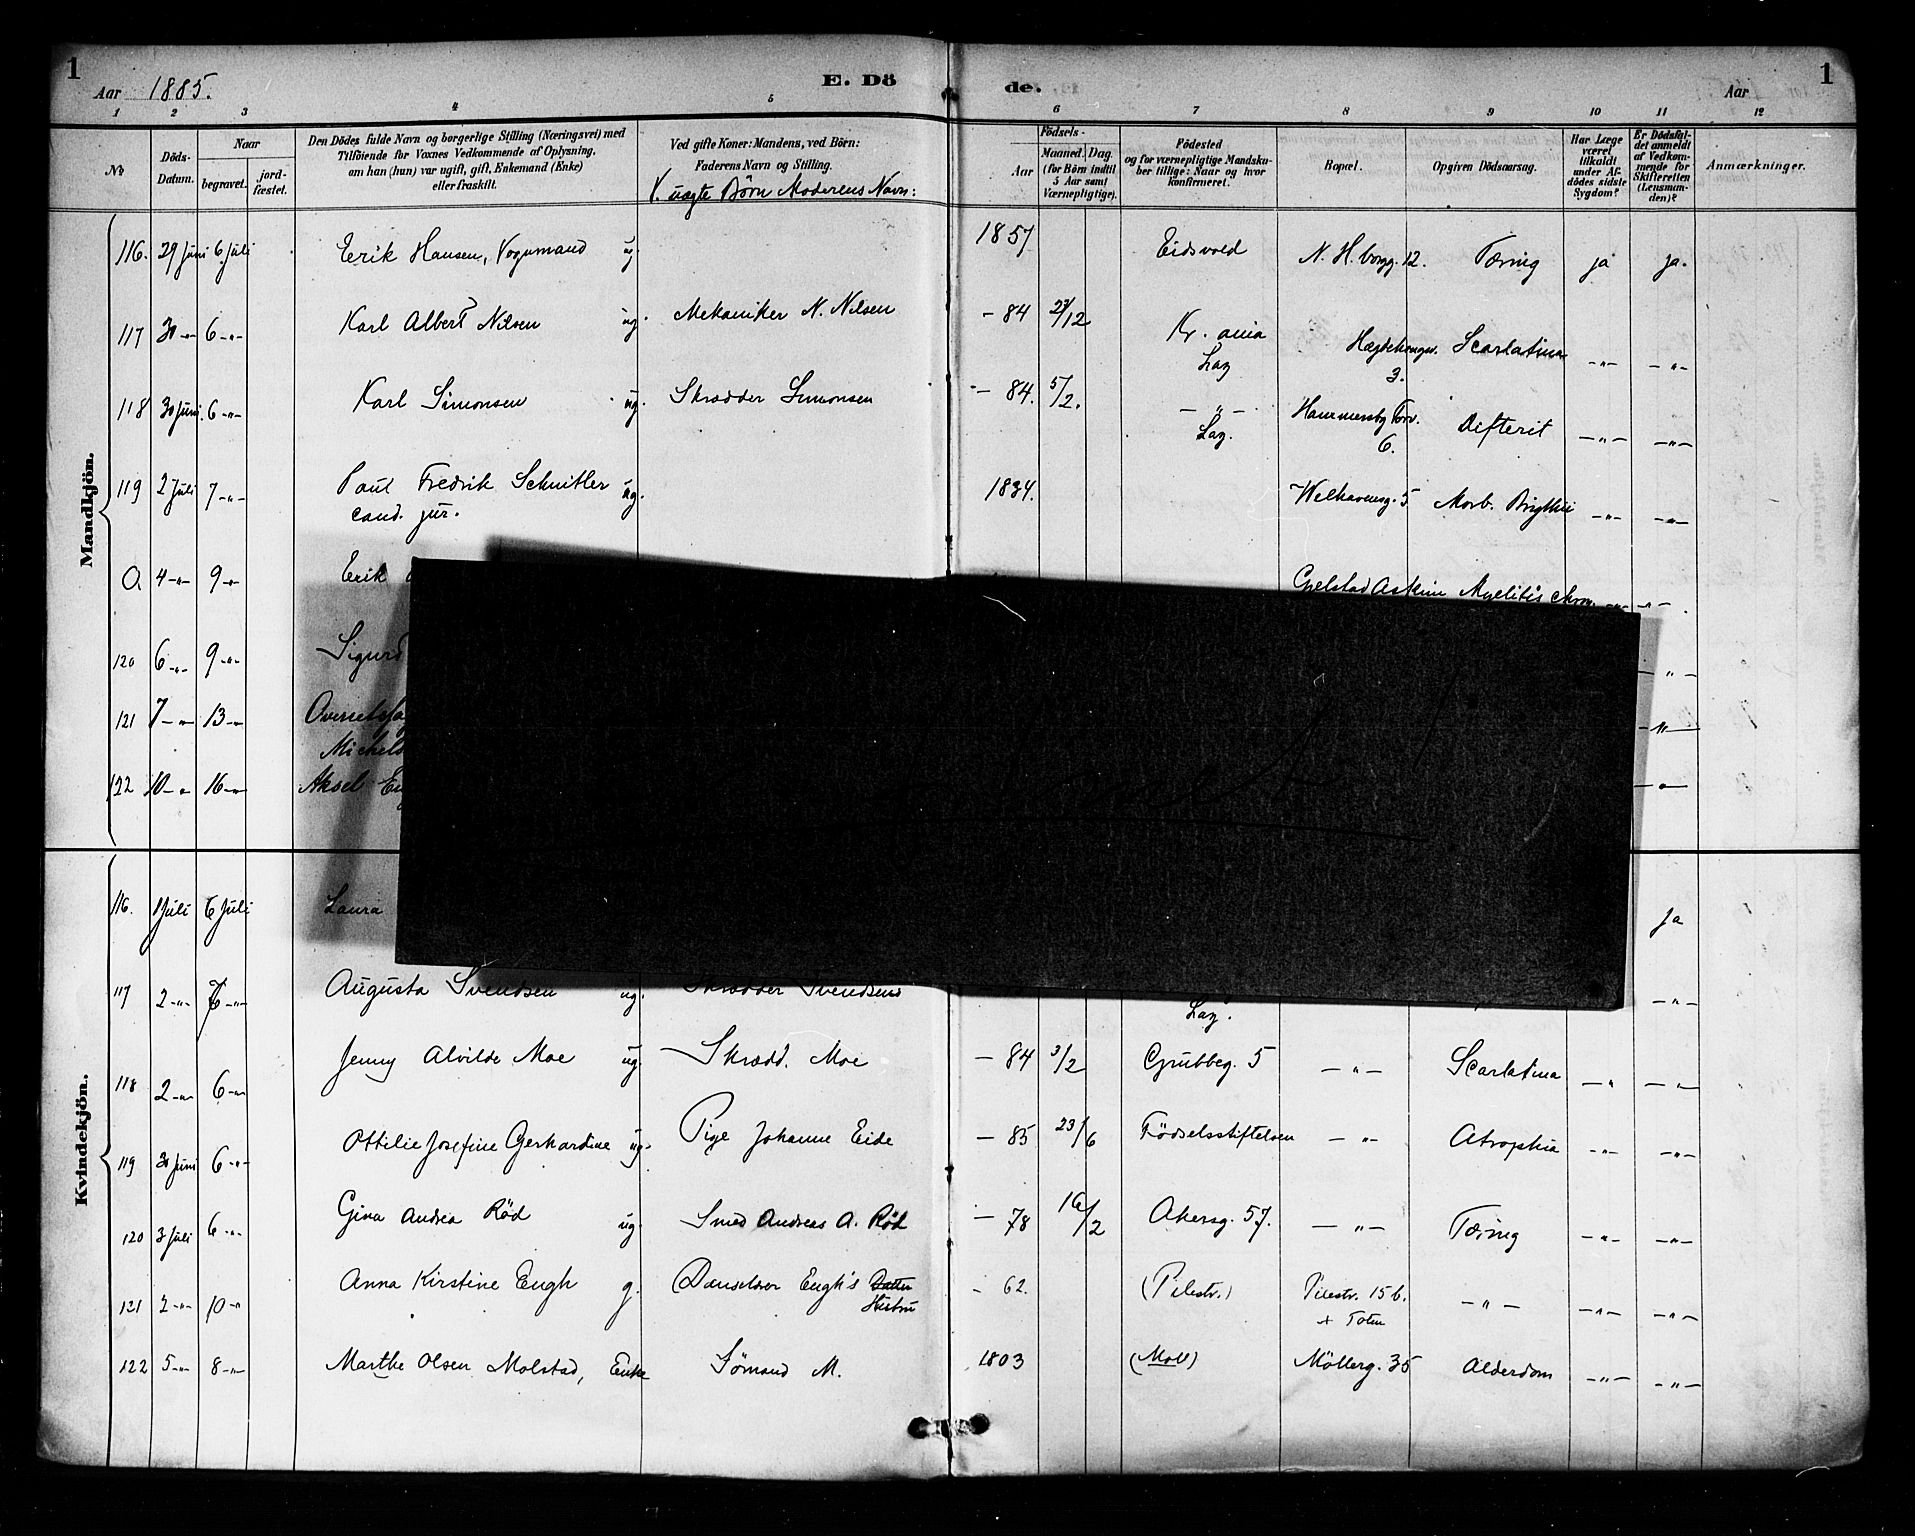 1 Aar 1885. E. Dö de. Aar 1
1 2 3 4 5 6 7 8 9 10 11 12
№ Döds-Datum. Naar begravet. jord-fæstet. Den Dödes fulde Navn og borgerlige Stilling (Næringsvei) med Tilföiende for Voxnes Vedkommende af Oplysning, om han (hun) var ugift, gift, Enkemand (Enke) eller fraskilt. Ved gifte Koner: Mandens, ved Börn: Faderens Navn og Stilling. V. uægte Børn Moderens Navn: Födsels- Aar Maaned. Dag. (for Börn indtil 5 Aar samt Værnepligtige). Födested og for værnepligtige Mandskaber tillige: Naar og hvor konfirmeret. Bopæl. Opgiven Dödsaarsag. Har Læge været tilkaldt under Afdödes sidste Sygdom? Er Dödsfaldet anmeldt af Vedkommende for Skifteretten (Lensmanden)? Anmærkninger.
Mandkjön.
116. 29 Juni 6 Juli Erik Hansen, Vognmand ug. 1857 Eidsvold N. H. borgg. 12. Tæring ja ja.
117 30 -"- 6 -"- Karl Albert Nilsen ug. Mekaniker N. Nilsen - 84 27/12 Kr. ania Laz 3. Scarlatina -"- -"-
118 30 Juni 6 -"- Karl Simonsen ug. Skrædder Simonsen - 84. 5/2. -"- Laz. Hammersbg Torv. 6. Difterit -"- -"-
119 2 Juli 7 -"- Paul Fredrik Schnitler cand. jur. ug. 1834. Welhavensg. 5 Morb. Brigthii -"- -"-
0 4 -"- 9 -"- Erik Askim Myelitis chron. -"- -"-
120 6 -"- 9 -"- Sigurd -"-
121 7 -"- 13 -"- -"-
122 10 -"- 16 -"- Aksel -"-
Kvindekjön.
116. 1 Juli 6 Juli Laura ja
117 2 -"- 6 -"- Augusta Svendsen ug. Skrædder Svendsens Laz. -"-
118 2 -"- 6 -"- Jenny Alvilde Moe ug. Skrædd. Moe - 84 3/2 Grubbeg. 5 -"- Scarlatina -"- -"-
119 30 Juni 6 -"- Ottilie Josefine Gerhardine ug. Pige Johanne Eide - 85 23/6 Födselsstiftelsen -"- Atrophia -"- -"-
120 3 Juli 6 -"- Gina Andrea Röd ug. Smed Andreas A. Röd - 78 16/2 Akersg. 57. -"- Tæring -"- -"-
121 2 -"- 10 -"- Anna Kirstine Engh g. Engh's Datter Hustru - 62. (Pilestr.) Pilestr. 15 b. + Toten -"- -"- -"-
122 5 -"- 8 -"- Marthe Olsen Molstad, Enke Sömand M. 1803 (Moll) Möllerg. 35 Alderdom -"- -"-